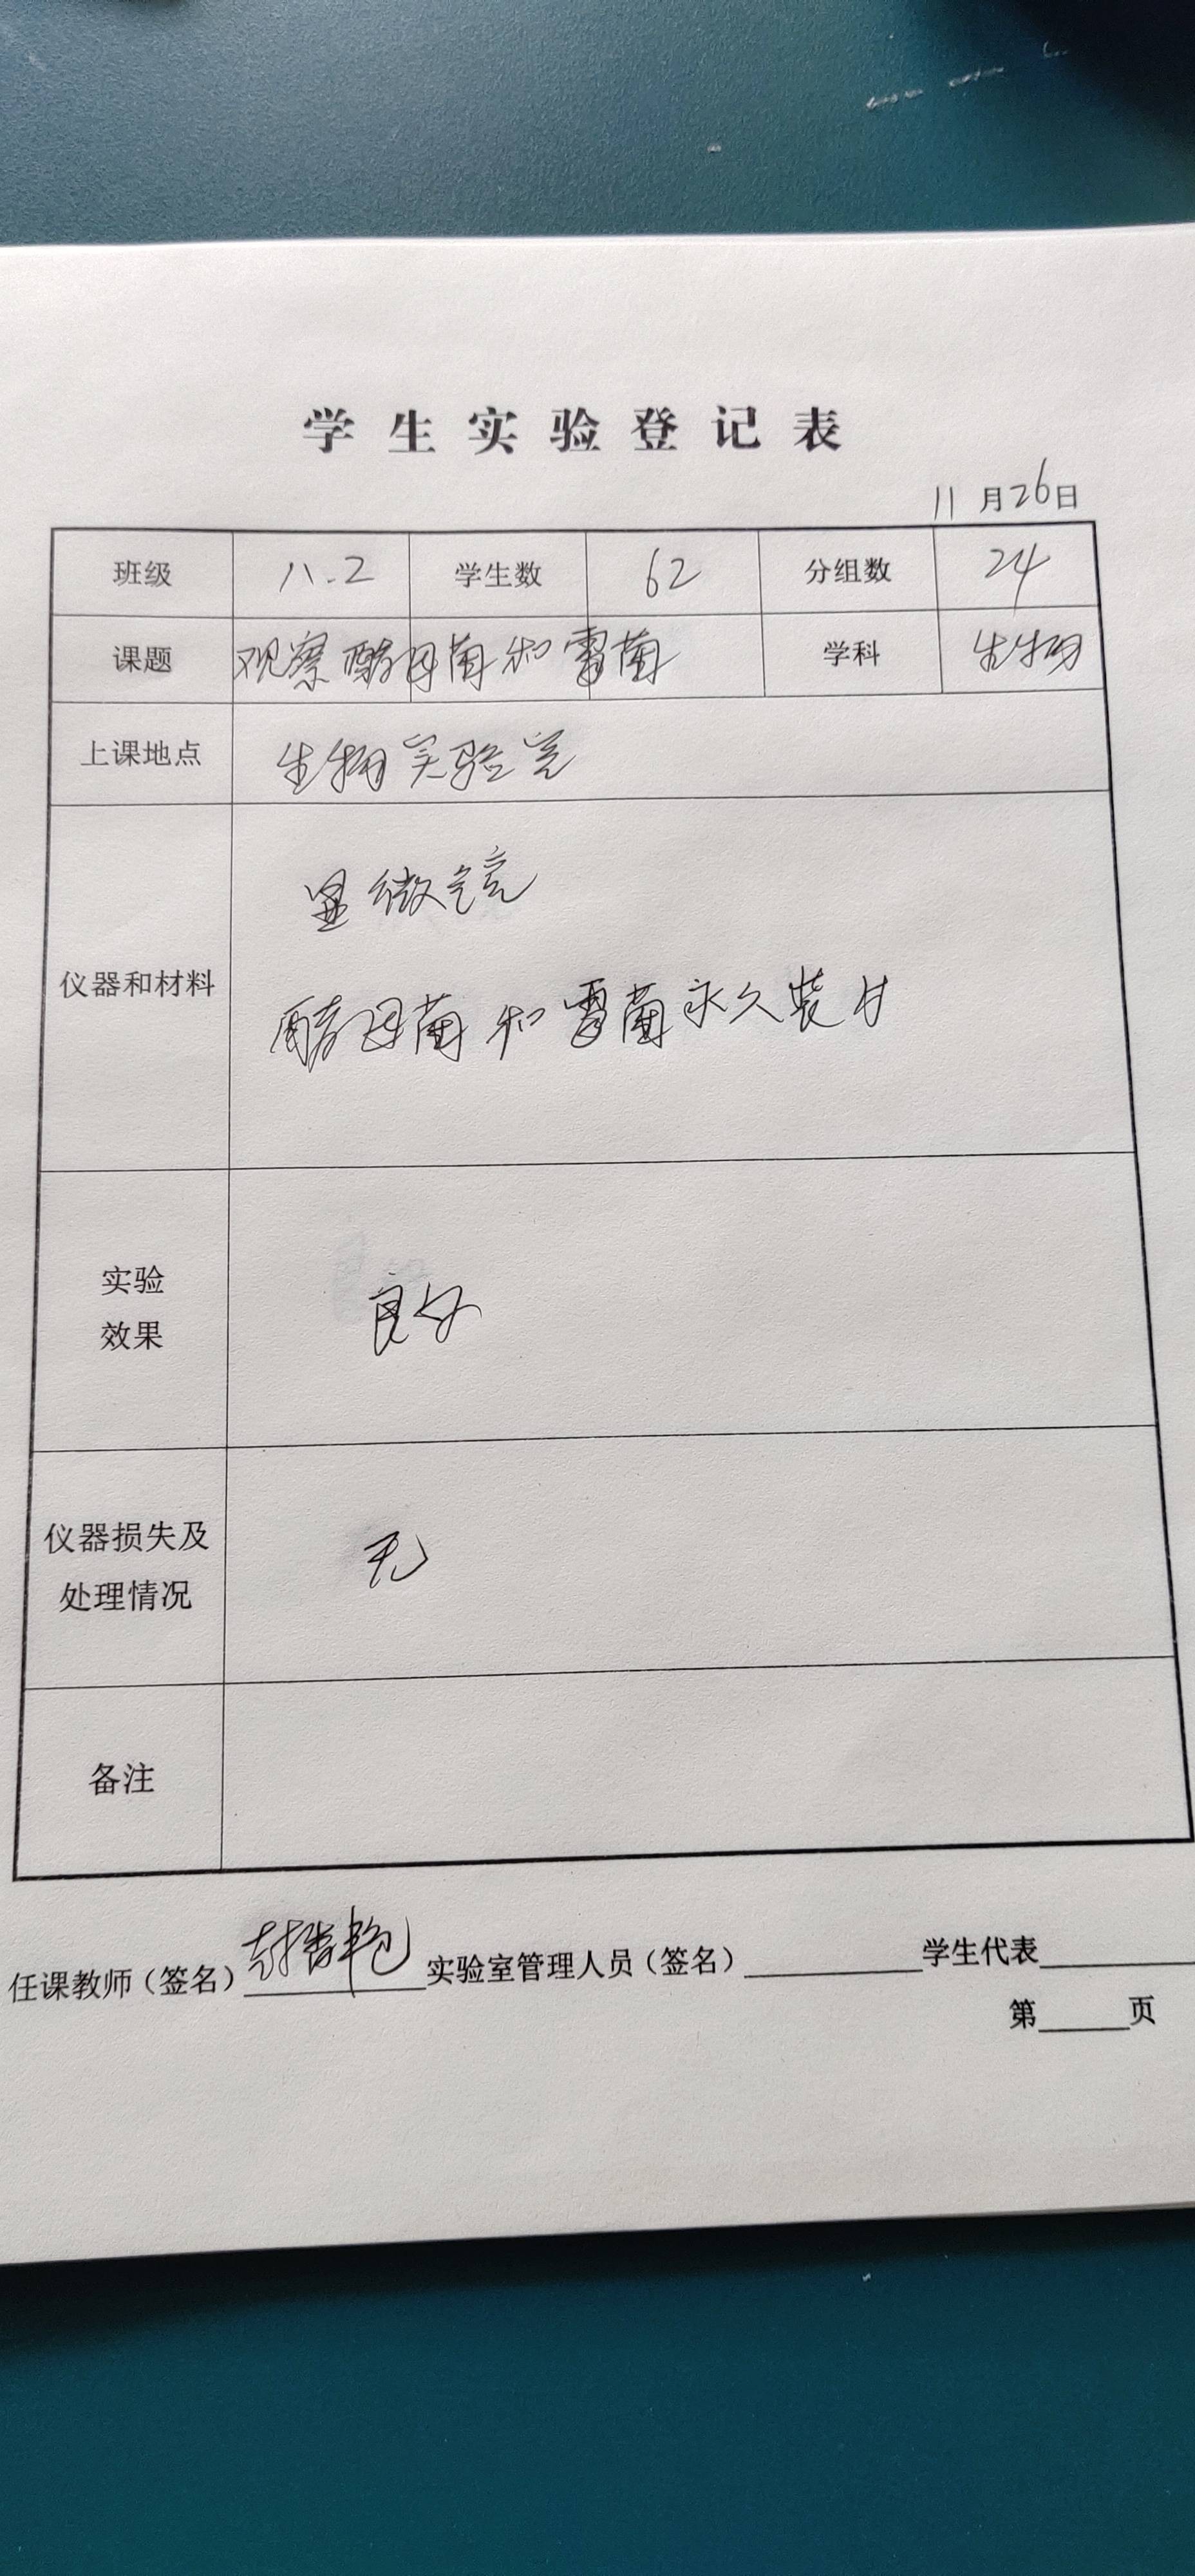 学生实验登记表
11月26日
班级 八.2 学生数 62 分组数 24
课题 观察酵母菌和霉菌 学科 生物
上课地点 生物实验室
仪器和材料 显微镜
酵母菌和霉菌永久装片
实验
效果 良好
仪器损失及
处理情况 无
备注
任课教师（签名） 实验室管理人员（签名） 学生代表
第 页